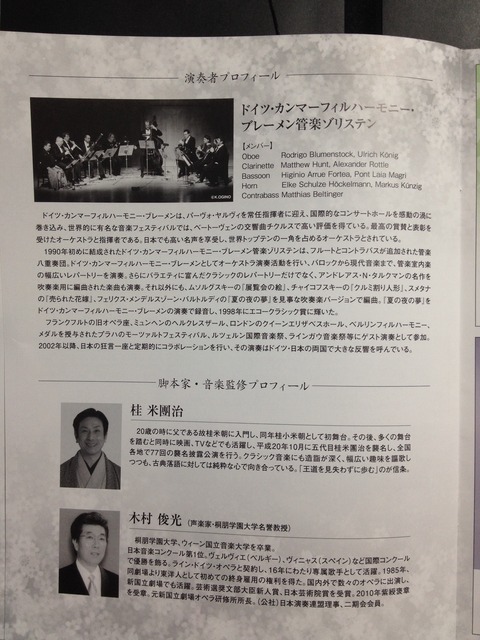 演奏者プロフィール
©K.OGINO
ドイツ・カンマーフィルハーモニー・
ブレーメン管楽ゾリステン
【メンバー】
Oboe Rodrigo Blumenstock, Ulrich König
Clarinette Matthew Hunt, Alexander Rottle
Bassoon Higinio Arrue Fortea, Pont Laia Magri
Horn Elke Schulze Höckelmann, Markus Künzig
Contrabass Matthias Beltinger
ドイツ・カンマーフィルハーモニー・ブレーメンは、パーヴォ・ヤルヴィを常任指揮者に迎え、国際的なコンサートホールを感動の渦に
巻き込み、世界的に有名な音楽フェスティバルでは、ベートーヴェンの交響曲チクルスで高い評価を得ている。最高の賞賛と表彰を
受けたオーケストラと指揮者である。日本でも高い名声を享受し、世界トップテンの一角を占めるオーケストラとされている。
1990年初めに結成されたドイツ・カンマーフィルハーモニー・ブレーメン管楽ゾリステンは、フルートとコントラバスが追加された管楽
八重奏団。ドイツ・カンマーフィルハーモニー・ブレーメンとしてオーケストラ演奏活動を行い、バロックから現代音楽まで、管楽室内楽
の幅広いレパートリーを演奏。さらにバラエティに富んだクラシックのレパートリーだけでなく、アンドレアス・N・タルクマンの名作を
吹奏楽用に編曲された楽曲も演奏。それ以外にも、ムソルグスキーの「展覧会の絵」、チャイコフスキーの「クルミ割り人形」、スメタナ
の「売られた花嫁」、フェリクス・メンデルスゾーン・バルトルディの「夏の夜の夢」を見事な吹奏楽バージョンで編曲。『夏の夜の夢』を
ドイツ・カンマーフィルハーモニー・ブレーメンの演奏で録音し、1998年にエコークラシック賞に輝いた。
フランクフルトの旧オペラ座、ミュンヘンのヘルクレスザール、ロンドンのクイーンエリザベスホール、ベルリンフィルハーモニー、
メダルを授与されたプラハのモーツァルトフェスティバル、ルツェルン国際音楽祭、ラインガウ音楽祭等にゲスト演奏として参加。
2002年以降、日本の狂言一座と定期的にコラボレーションを行い、その演奏はドイツ・日本の両国で大きな反響を呼んでいる。
脚本家・音楽監修プロフィール
桂 米團治
20歳の時に父である故桂米朝に入門し、同年桂小米朝として初舞台。その後、多くの舞台
を踏むと同時に映画、TVなどでも活躍し、平成20年10月に五代目桂米團治を襲名し、全国
各地で77回の襲名披露公演を行う。クラシック音楽にも造詣が深く、幅広い趣味を謳歌し
つつも、古典落語に対しては純粋な心で向き合っている。「王道を見失わずに歩む」のが信条。
木村 俊光（声楽家・桐朋学園大学名誉教授）
桐朋学園大学、ウィーン国立音楽大学を卒業。
日本音楽コンクール第1位、ヴェルヴィエ（ベルギー）、ヴィニャス（スペイン）など国際コンクール
で優勝を飾る。ライン・ドイツ・オペラと契約し、16年にわたり専属歌手として活躍。1985年、
同劇場より東洋人として初めての終身雇用の権利を得た。国内外で数々のオペラに出演し、
新国立劇場でも活躍。芸術選奨文部大臣新人賞、日本芸術院賞を受賞。2010年紫綬褒章
を受章。元新国立劇場オペラ研修所所長、（公社）日本演奏連盟理事、二期会会員。